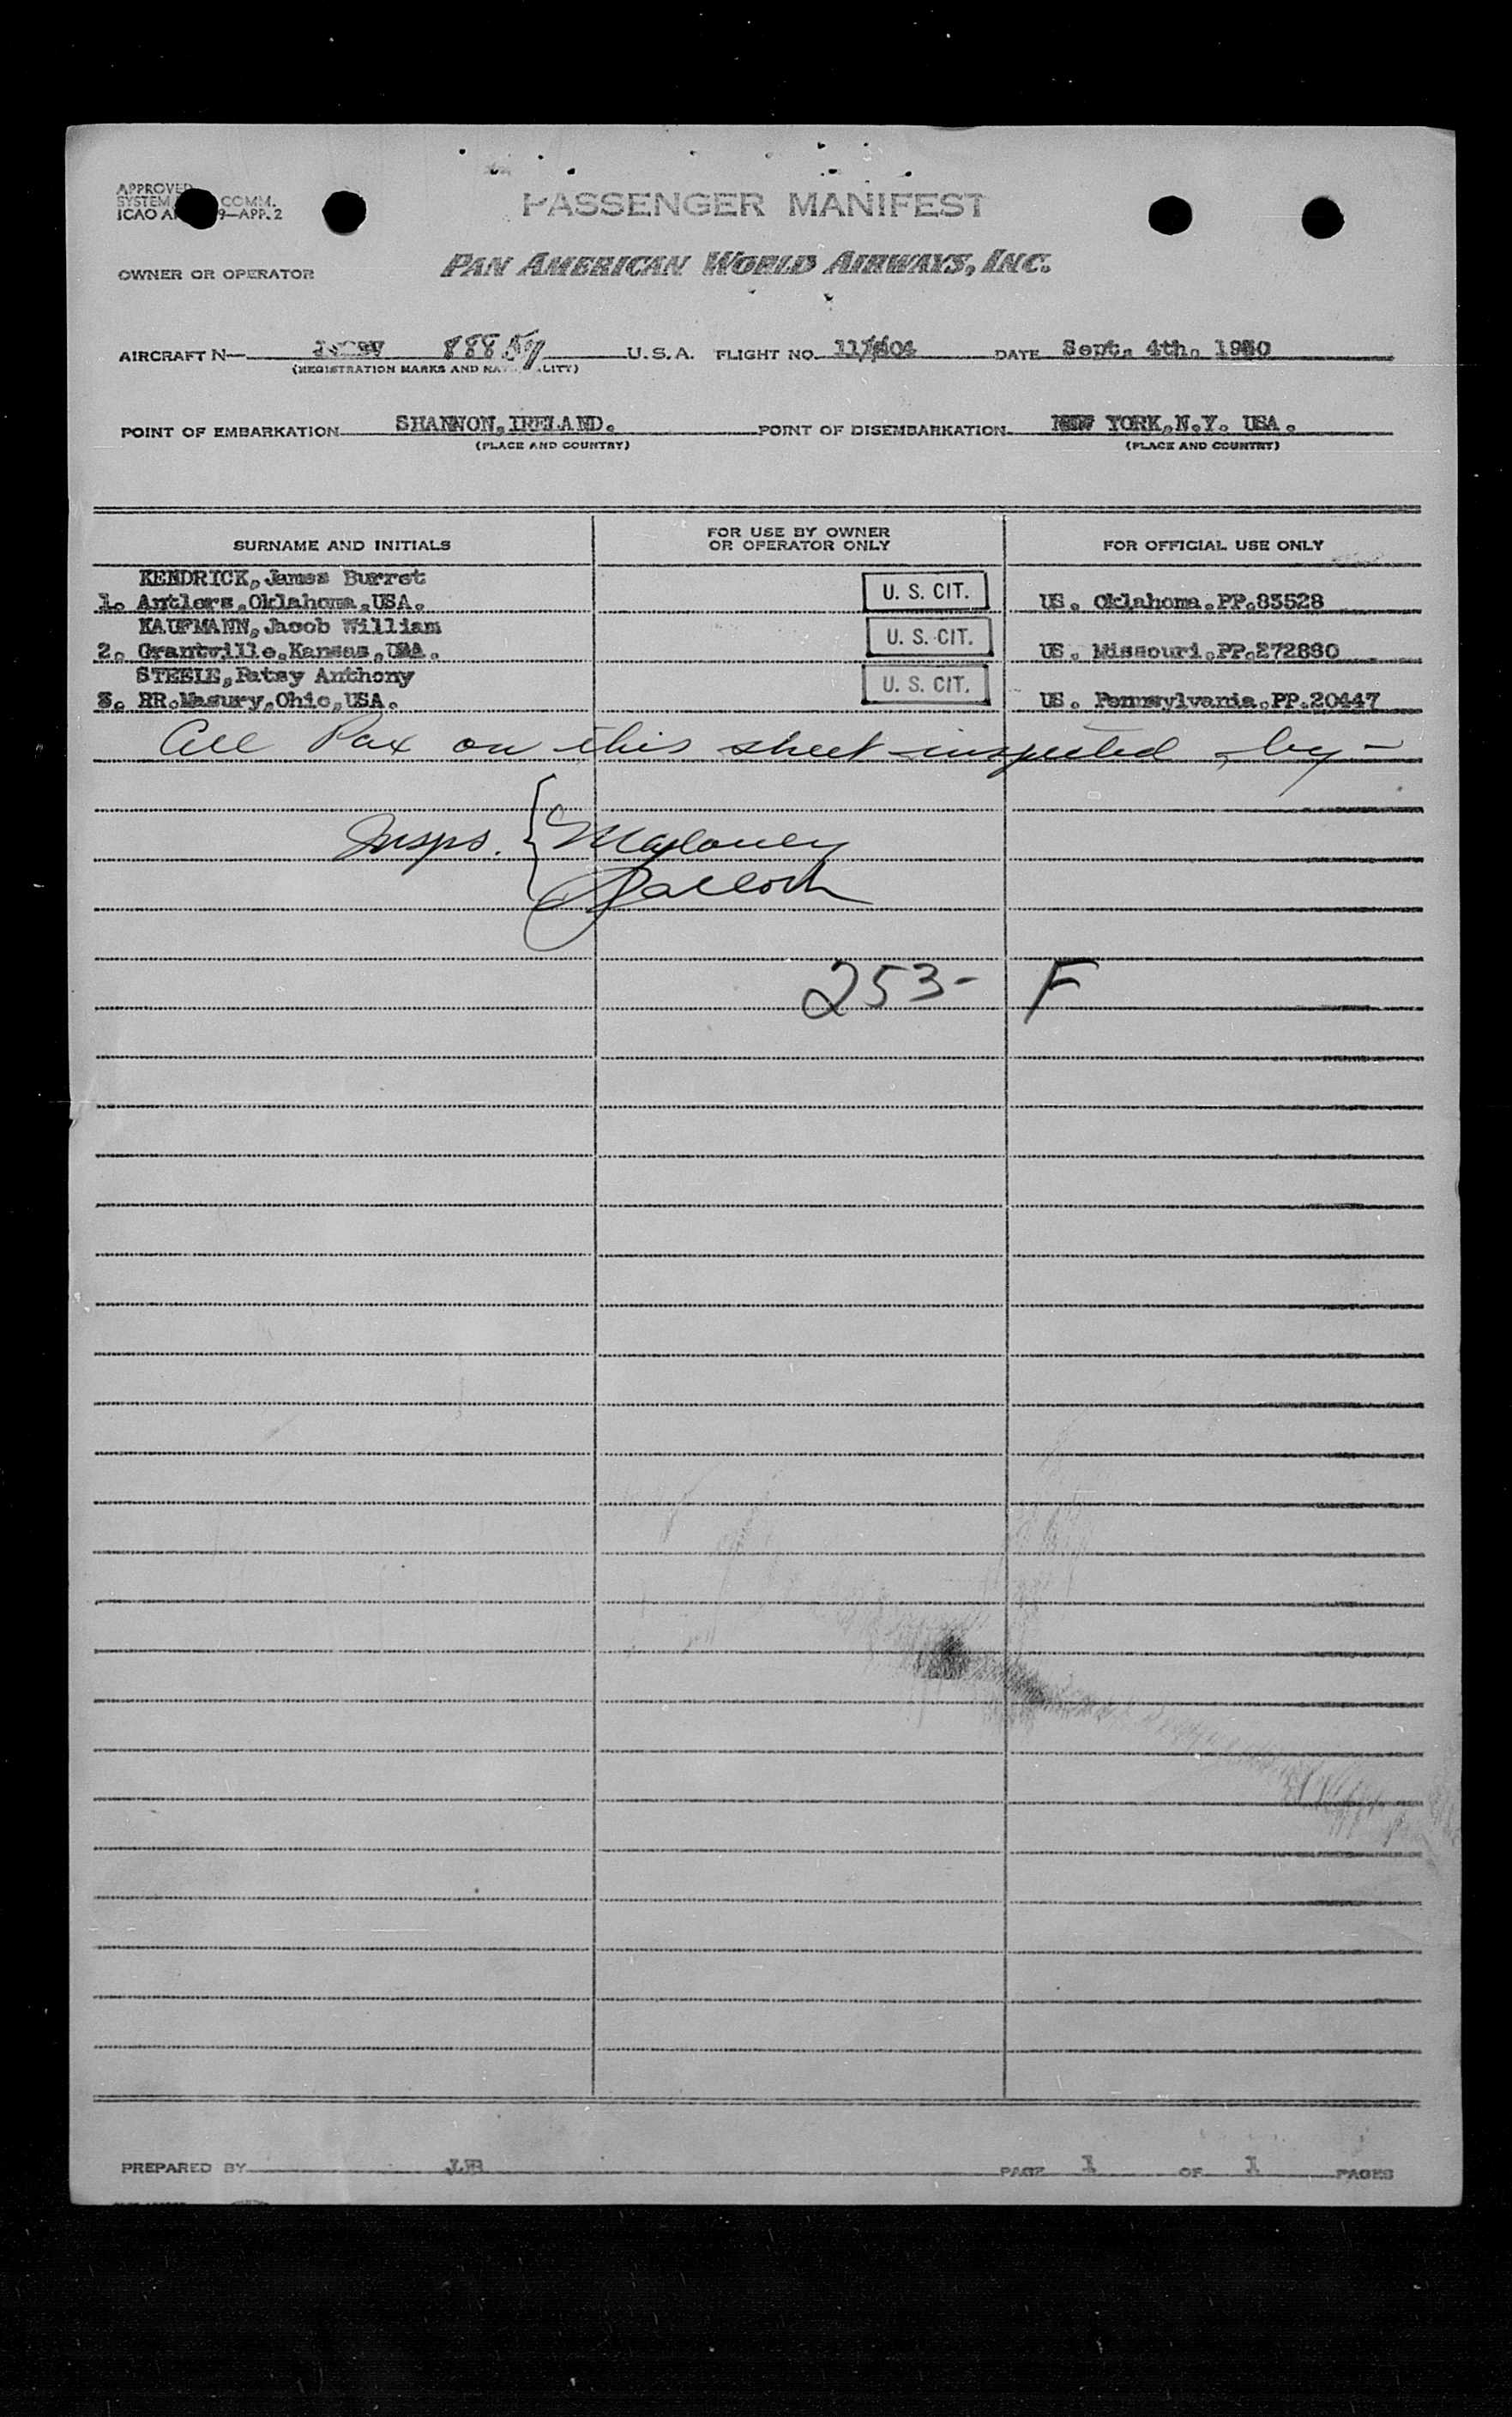 PASSENGER MANIFEST
OWNER OR OPERATOR PAN AMERICAN WORLD AIRWAYS, INC.
AIRCRAFT N— 88857 U.S.A. FLIGHT NO. DATE Sept. 4th. 1950
(REGISTRATION MARKS AND
POINT OF EMBARKATION SHANNON, IRELAND. POINT OF DISEMBARKATION NEW YORK, N.Y. USA.
(PLACE AND COUNTRY) (PLACE AND COUNTRY)
SURNAME AND INITIALS
FOR USE BY OWNER
OR OPERATOR ONLY
FOR OFFICIAL USE ONLY
KENDRICK, James Burret
1. Antlers, Oklahoma, USA. U. S. CIT. US. Oklahoma. PP. 83528
KAUFMANN, Jacob William
2. Grantville, Kansas, USA. U. S. CIT. US. Missouri. PP. 272880
STEELE, Patsy Anthony
3. RR. Masury, Ohio, USA. U. S. CIT. US. Pennsylvania. PP. 20447
All Pax on this sheet inspected by —
Insps. { Maloney
253- F
PREPARED BY PAGE 1 OF 1 PAGES